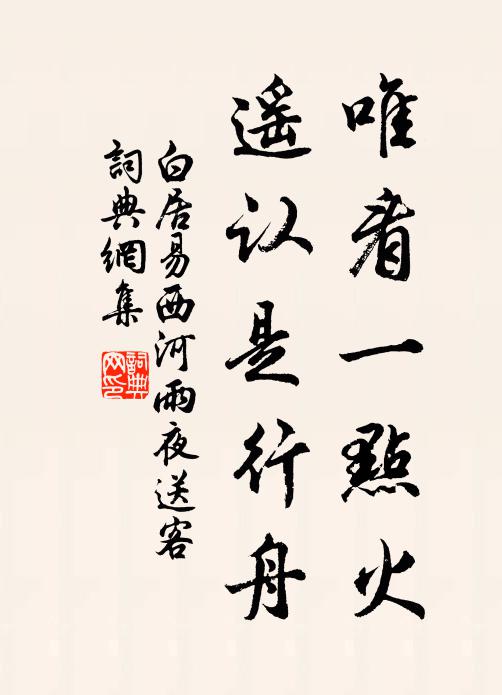 唯看一點火
遥认是行舟
白居易西河雨夜送客
詞典網集
詞典网印